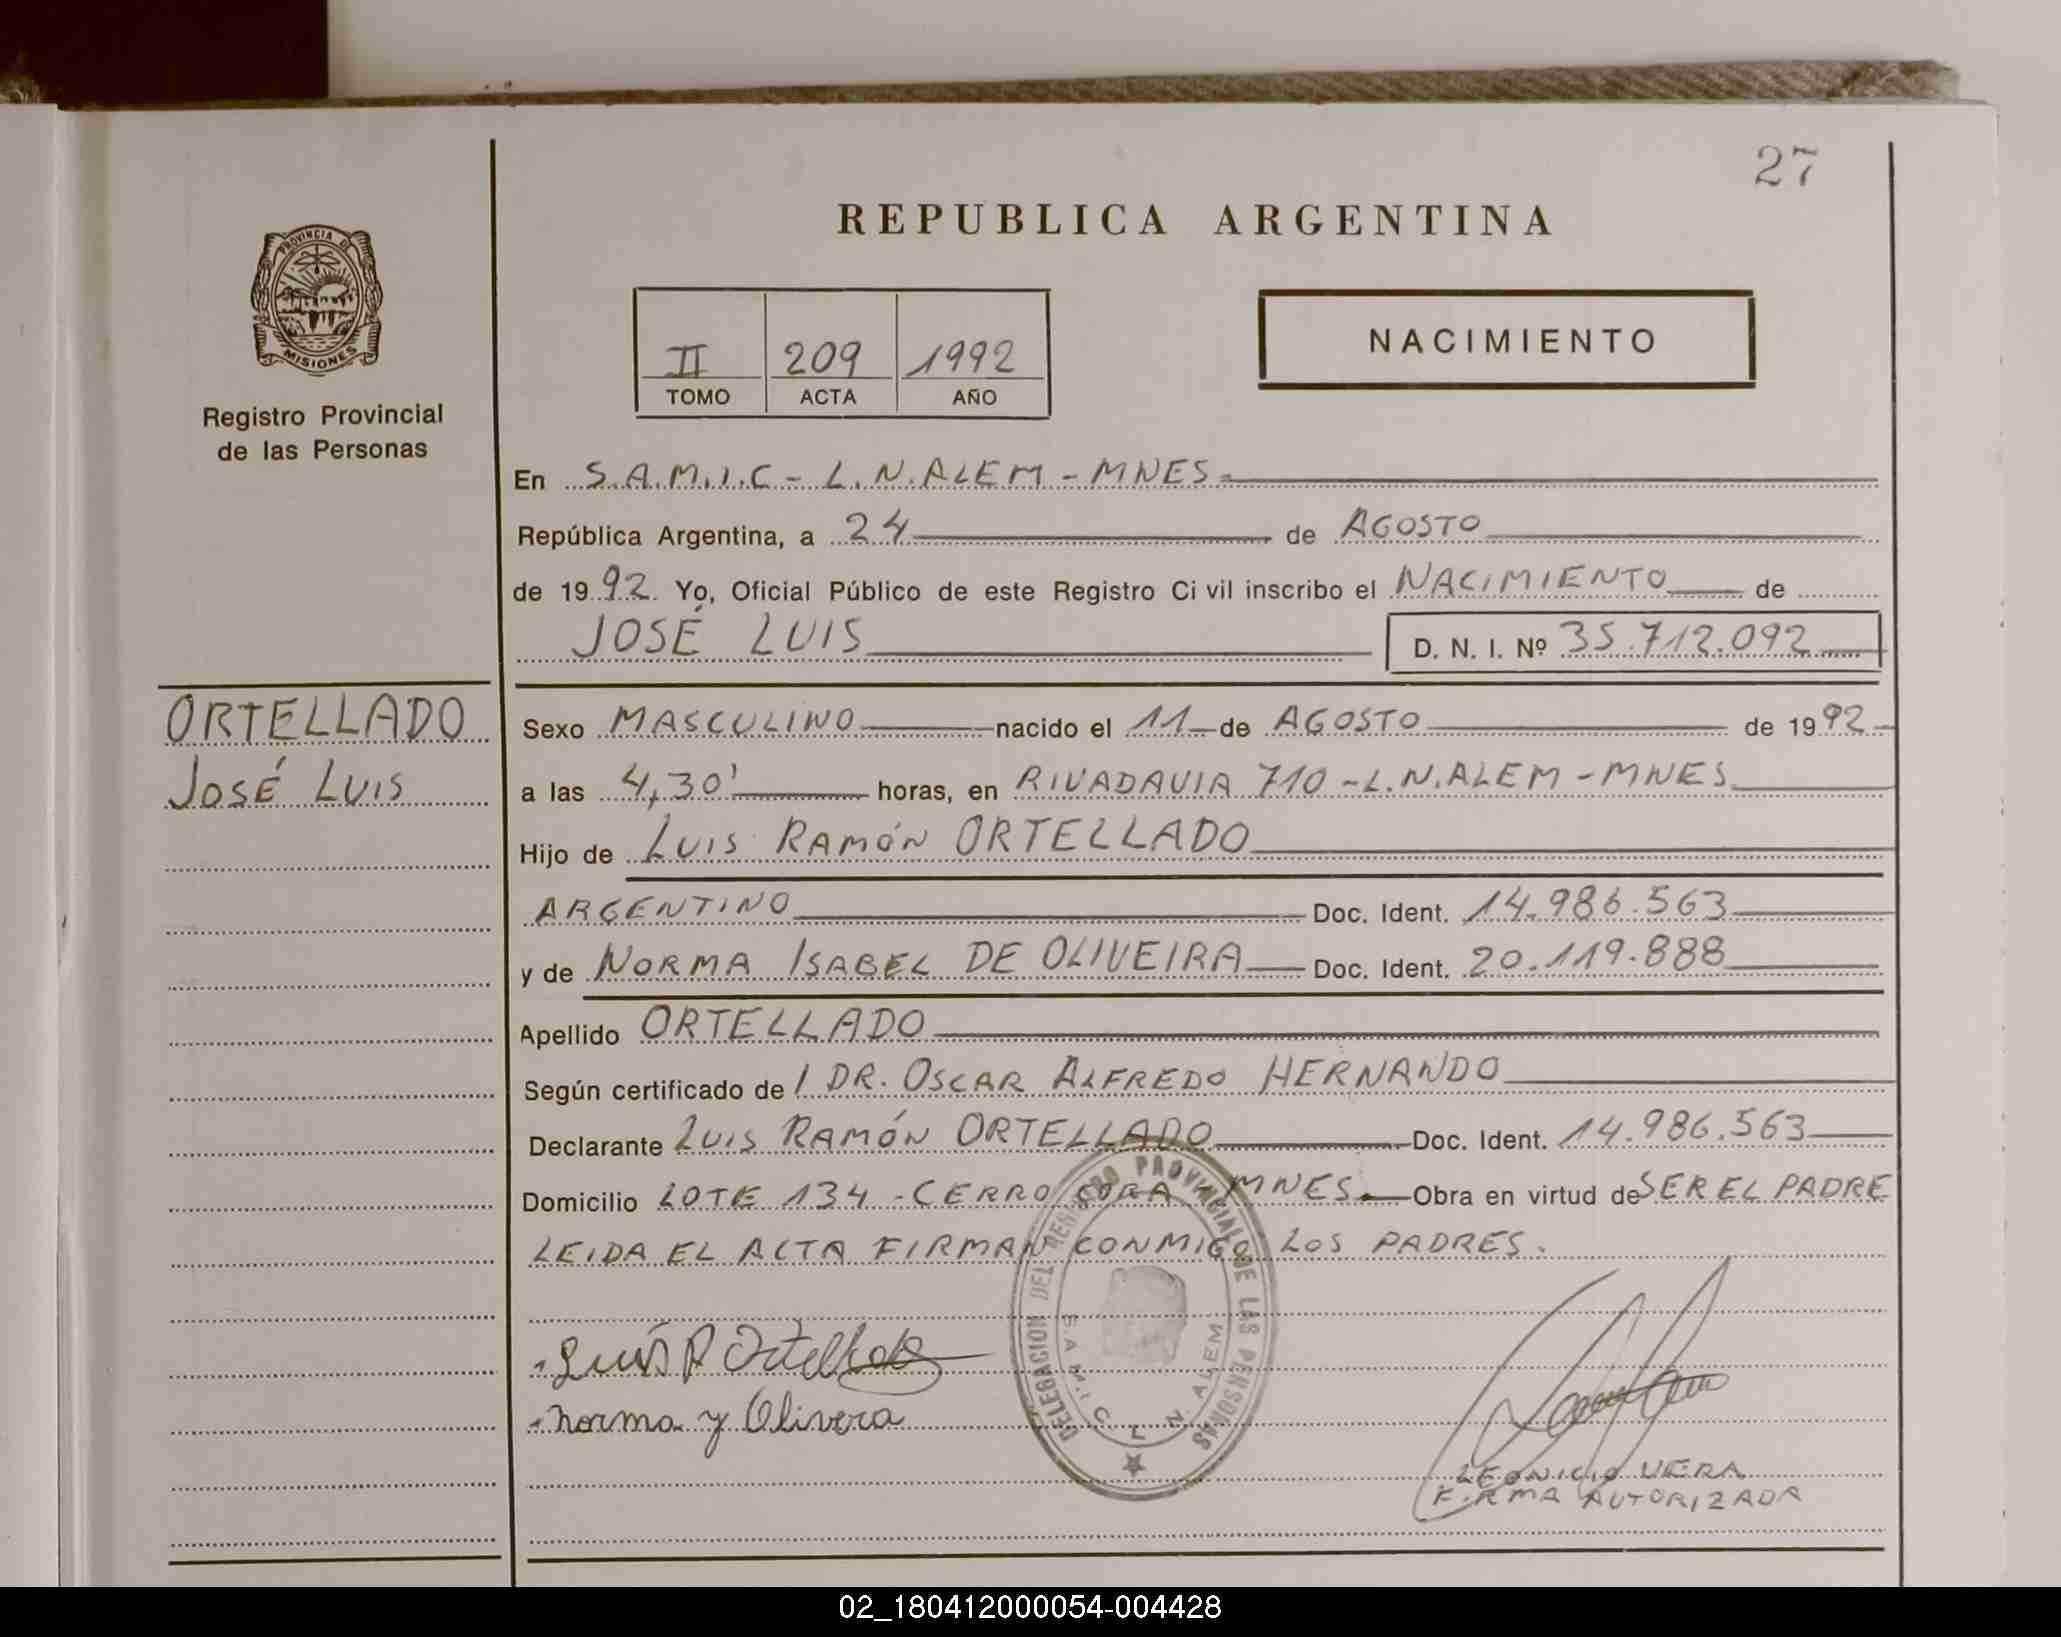 27
REPUBLICA ARGENTINA
PROVINCIA DE
MISIONES
Registro Provincial
de las Personas
II 209 1992
TOMO ACTA AÑO
NACIMIENTO
En S.A.M.I.C - L.N.ALEM - MNES -
República Argentina, a 24 de AGOSTO
de 1992. Yo, Oficial Público de este Registro Ci vil inscribo el NACIMIENTO de
JOSÉ LUIS D. N. I. Nº 35.712.092
ORTELLADO
José Luis
Sexo MASCULINO nacido el 11 de AGOSTO de 1992
a las 4,30' horas, en RIVADAVIA 710 - L.N.ALEM - MNES
Hijo de Luis Ramón ORTELLADO
ARGENTINO Doc. Ident. 14.986.563
y de NORMA ISABEL DE OLIVEIRA Doc. Ident. 20.119.888
Apellido ORTELLADO
Según certificado de / DR. OSCAR ALFREDO HERNANDO
Declarante Luis Ramón ORTELLADO Doc. Ident. 14.986.563
Domicilio LOTE 134 - CERRO CORA - MNES. Obra en virtud de SER EL PADRE
LEIDA EL ACTA FIRMAN CONMIGO LOS PADRES.
DELEGACION DEL REGISTRO PROVINCIAL DE LAS PERSONAS
S.A.M.I.C L. N. ALEM
Luis R Ortellado
Norma y Olivera
LEONICIO VERA
FIRMA AUTORIZADA
02_180412000054-004428